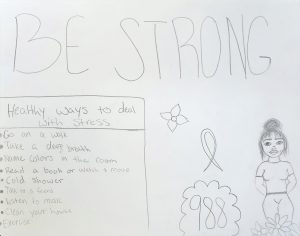 BE STRONG
Healthy ways to deal
with stress
Go on a walk
Take a deep breath
Name colors in the room
Read a book or watch a movie
Cold shower
Talk to a friend
Listen to music
Clean your house
Exercise
988